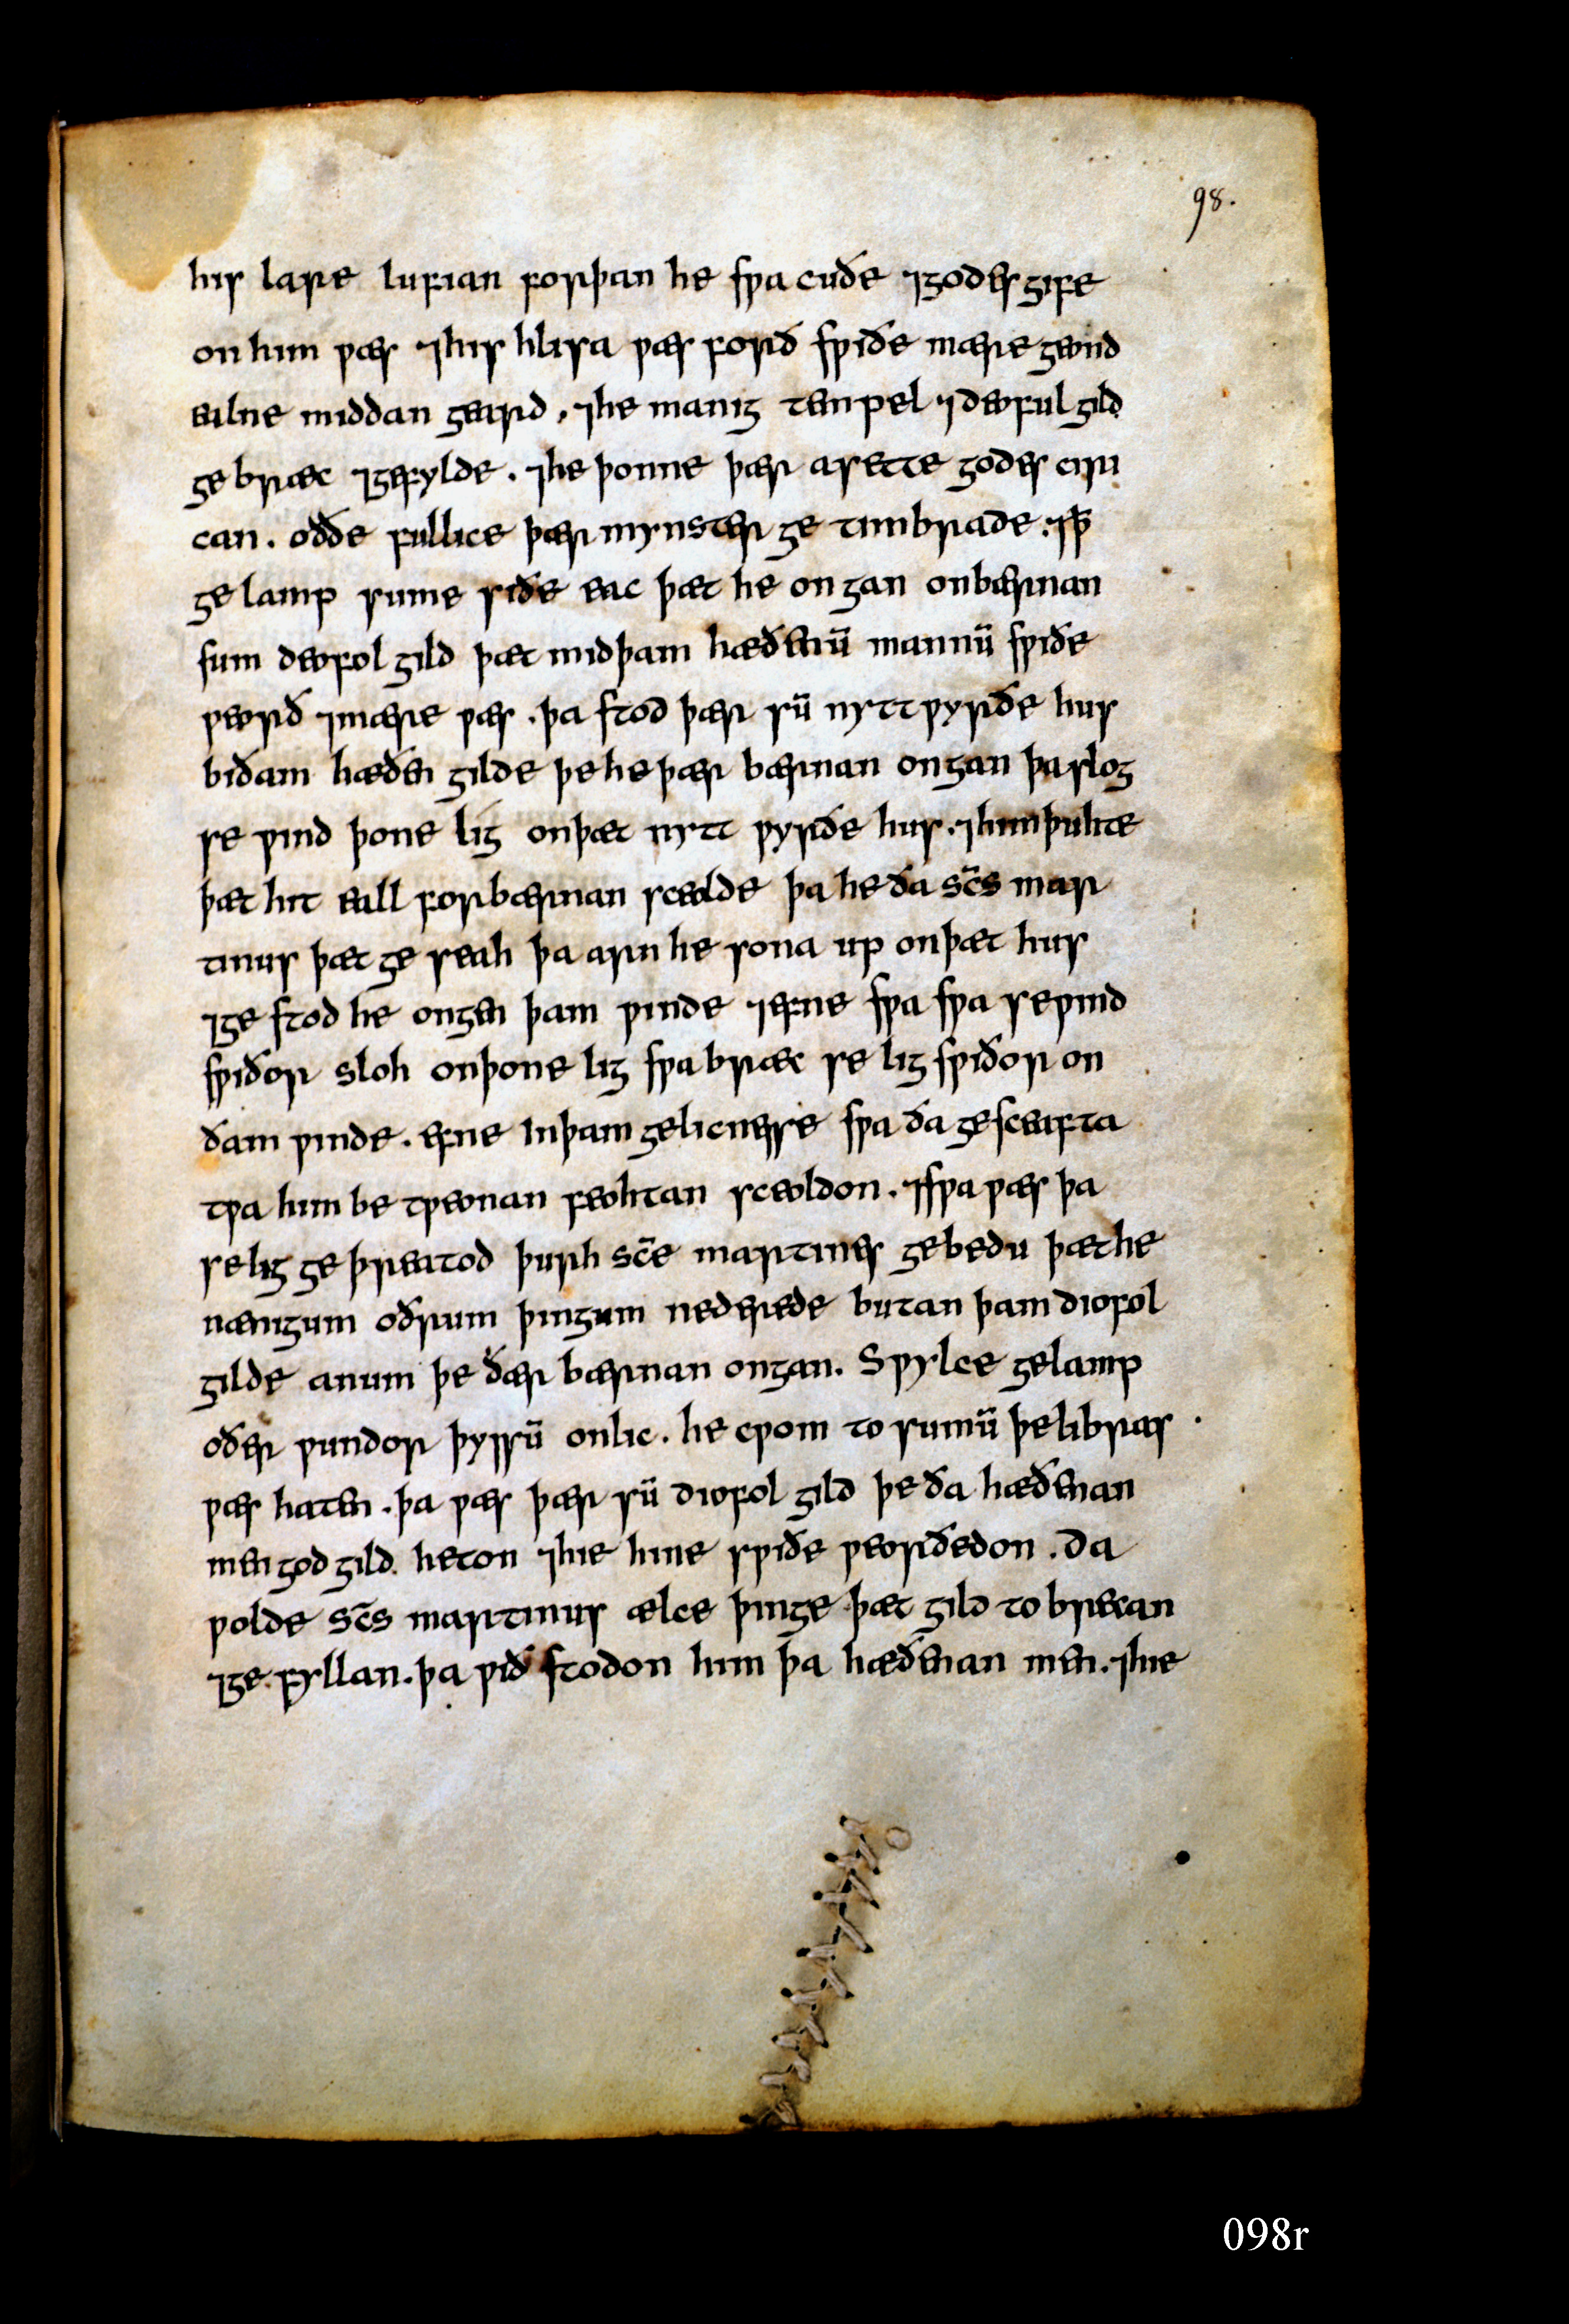 98.
his lare lufian forþan he sƿa cuðe ⁊godes gife
on him ƿæs ⁊his hlisa ƿæs forð sƿiðe mære geond
ealne middan geard . ⁊he manig tempel ⁊deoful gild
ge bræc ⁊gefylde . ⁊he þonne þær asette godes ciri
can . oððe fullice þær mynster ge timbrade . ⁊ꝥ
ge lamp sume siðe eac þæt he on gan onbærnan
sum deofol gild þæt midþam hæðenū mannū sƿiðe
ƿeorð ⁊mære ƿæs . þa stod þær sū nytt ƿyrðe hus
biðam hæðen gilde þe he þær bærnan ongan þa slog
se ƿind þone lig onþæt nytt ƿyrðe hus . ⁊himþuhte
þæt hit eall forbærnan sceolde þa he ða sc̄s mar
tinus þæt ge seah þa arn he sona up onþæt hus
⁊ge stod he ongen þam ƿinde ⁊efne sƿa sƿa se ƿind
sƿiðor sloh onþone lig sƿa bræc se lig sƿiðor on
ðam ƿinde . efne Inþam gelicnesse sƿa ða gesceafta
tƿa him be tƿeonan feohtan sceoldon . ⁊sƿa ƿæs þa
se lig ge þreatod þurh sc̄e martines gebedu þæt he
nænigum oðrum þingum ne derede butan þam diofol
gilde anum þe ðær bærnan ongan . Sƿylce gelamp
oðer ƿundor þyssū onlic . he cƿom to sumū þe libras
ƿæs haten . þa ƿæs þær sū diofol gild þe ða hæðenan
men god gild heton ⁊hie hine sƿiðe ƿeorðedon . Ða
ƿolde sc̄s martinus ælce þinge þæt gild to brecan
⁊ge fyllan . þa ƿið stodon him þa hæðenan men . ⁊hie
098r